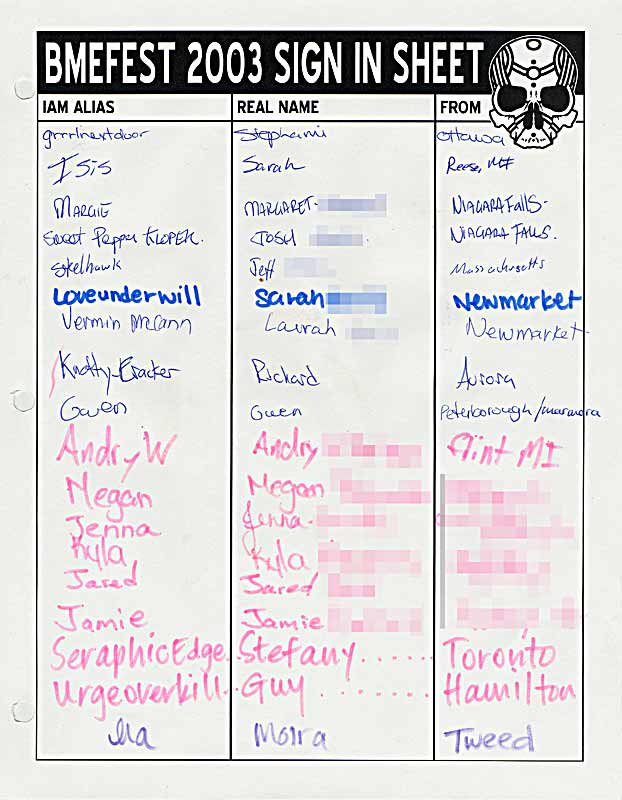 BMEFEST 2003 SIGN IN SHEET
IAM ALIAS REAL NAME FROM
grrrlnextdoor Stephanie Ottawa
Isis Sarah Reese, MI
MARGIE MARGARET NIAGARA Falls
Sweet Pepper KLOPEK. JOSH NIAGARA FALLS.
Jeff Massachusetts
Loveunderwill Sarah Newmarket
Vermin McCann Laurah Newmarket
Knotty-Cracker Richard Aurora
Gwen Gwen Peterborough/marmora
Andry W Andry Flint MI
Megan Megan
Jenna Jenna
Kyla Kyla
Jared Jared
Jamie Jamie
SeraphicEdge.. Stefany..... Toronto
Urgeoverkill.. Guy ....... Hamilton
Moira Tweed